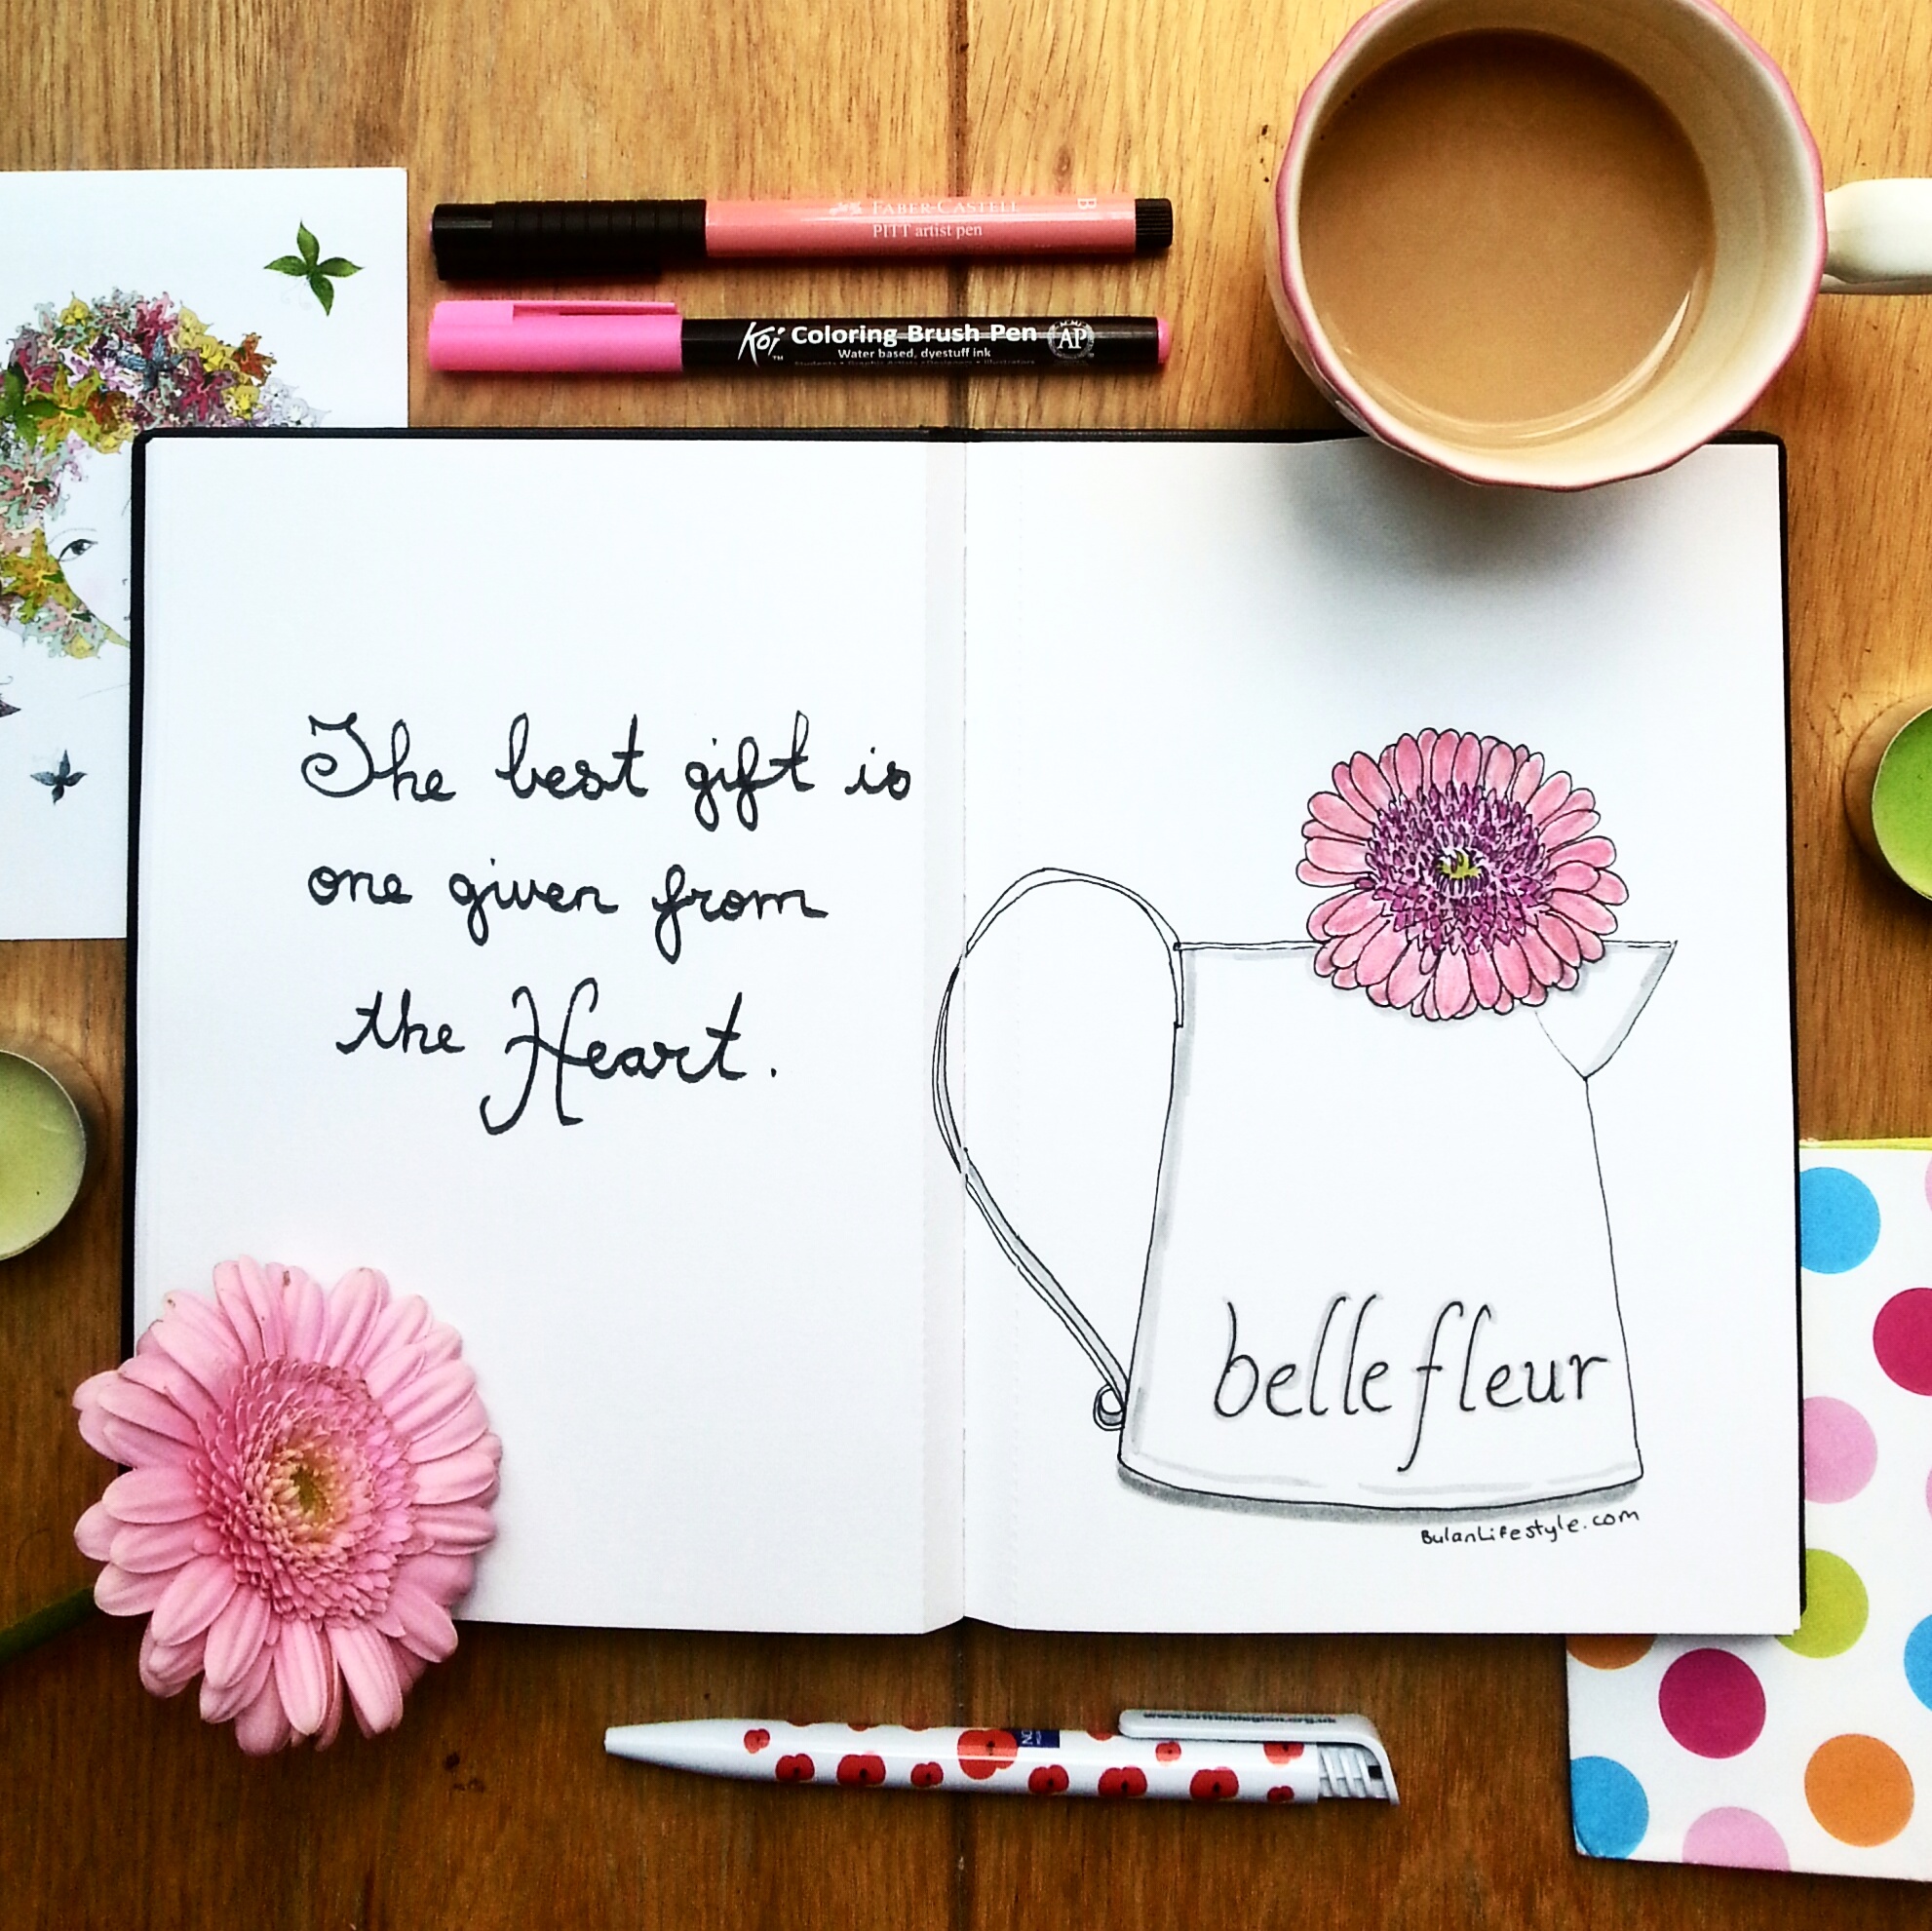 FABER-CASTELL B
PITT artist pen
Koi™ Coloring Brush Pen AP
Water based, dyestuff ink
Students • Graphic Artists • Designers • Illustrators
The best gift is
one given from
the Heart.
belle fleur
BulanLifestyle.com
www.britishlegion.org.uk